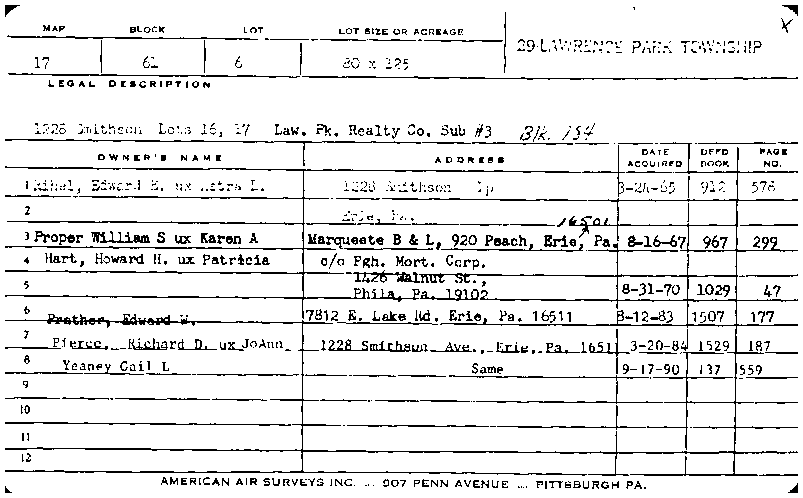 MAP BLOCK LOT LOT SIZE OR ACREAGE
29 LAWRENCE PARK TOWNSHIP X
17 61 6 80 x 125
LEGAL DESCRIPTION
1228 Smithson Lots 16, 17 Law. Pk. Realty Co. Sub #3 Blk. 154
OWNER'S NAME ADDRESS DATE ACQUIRED DEED BOOK PAGE NO.
1 Edward E. ux L. 1228 Smithson 3-24-65 912 578
2 Erie, Pa.
16501
3 Proper William S ux Karen A Marquette B & L, 920 Peach, Erie, Pa. 8-16-67 967 299
4 Hart, Howard H. ux Patricia c/o Pgh. Mort. Corp.
1426 Walnut St.,
5 Phila, Pa. 19102 8-31-70 1029 47
6 Prather, Edward W. 7812 E. Lake Rd. Erie, Pa. 16511 8-12-83 1507 177
7 Pierce, Richard D. ux JoAnn 1228 Smithson Ave., Erie, Pa. 1651 3-20-84 1529 187
8 Yeaney Gail L Same 9-17-90 137 1559
9
10
11
12
AMERICAN AIR SURVEYS INC. ... 907 PENN AVENUE ... PITTSBURGH PA.